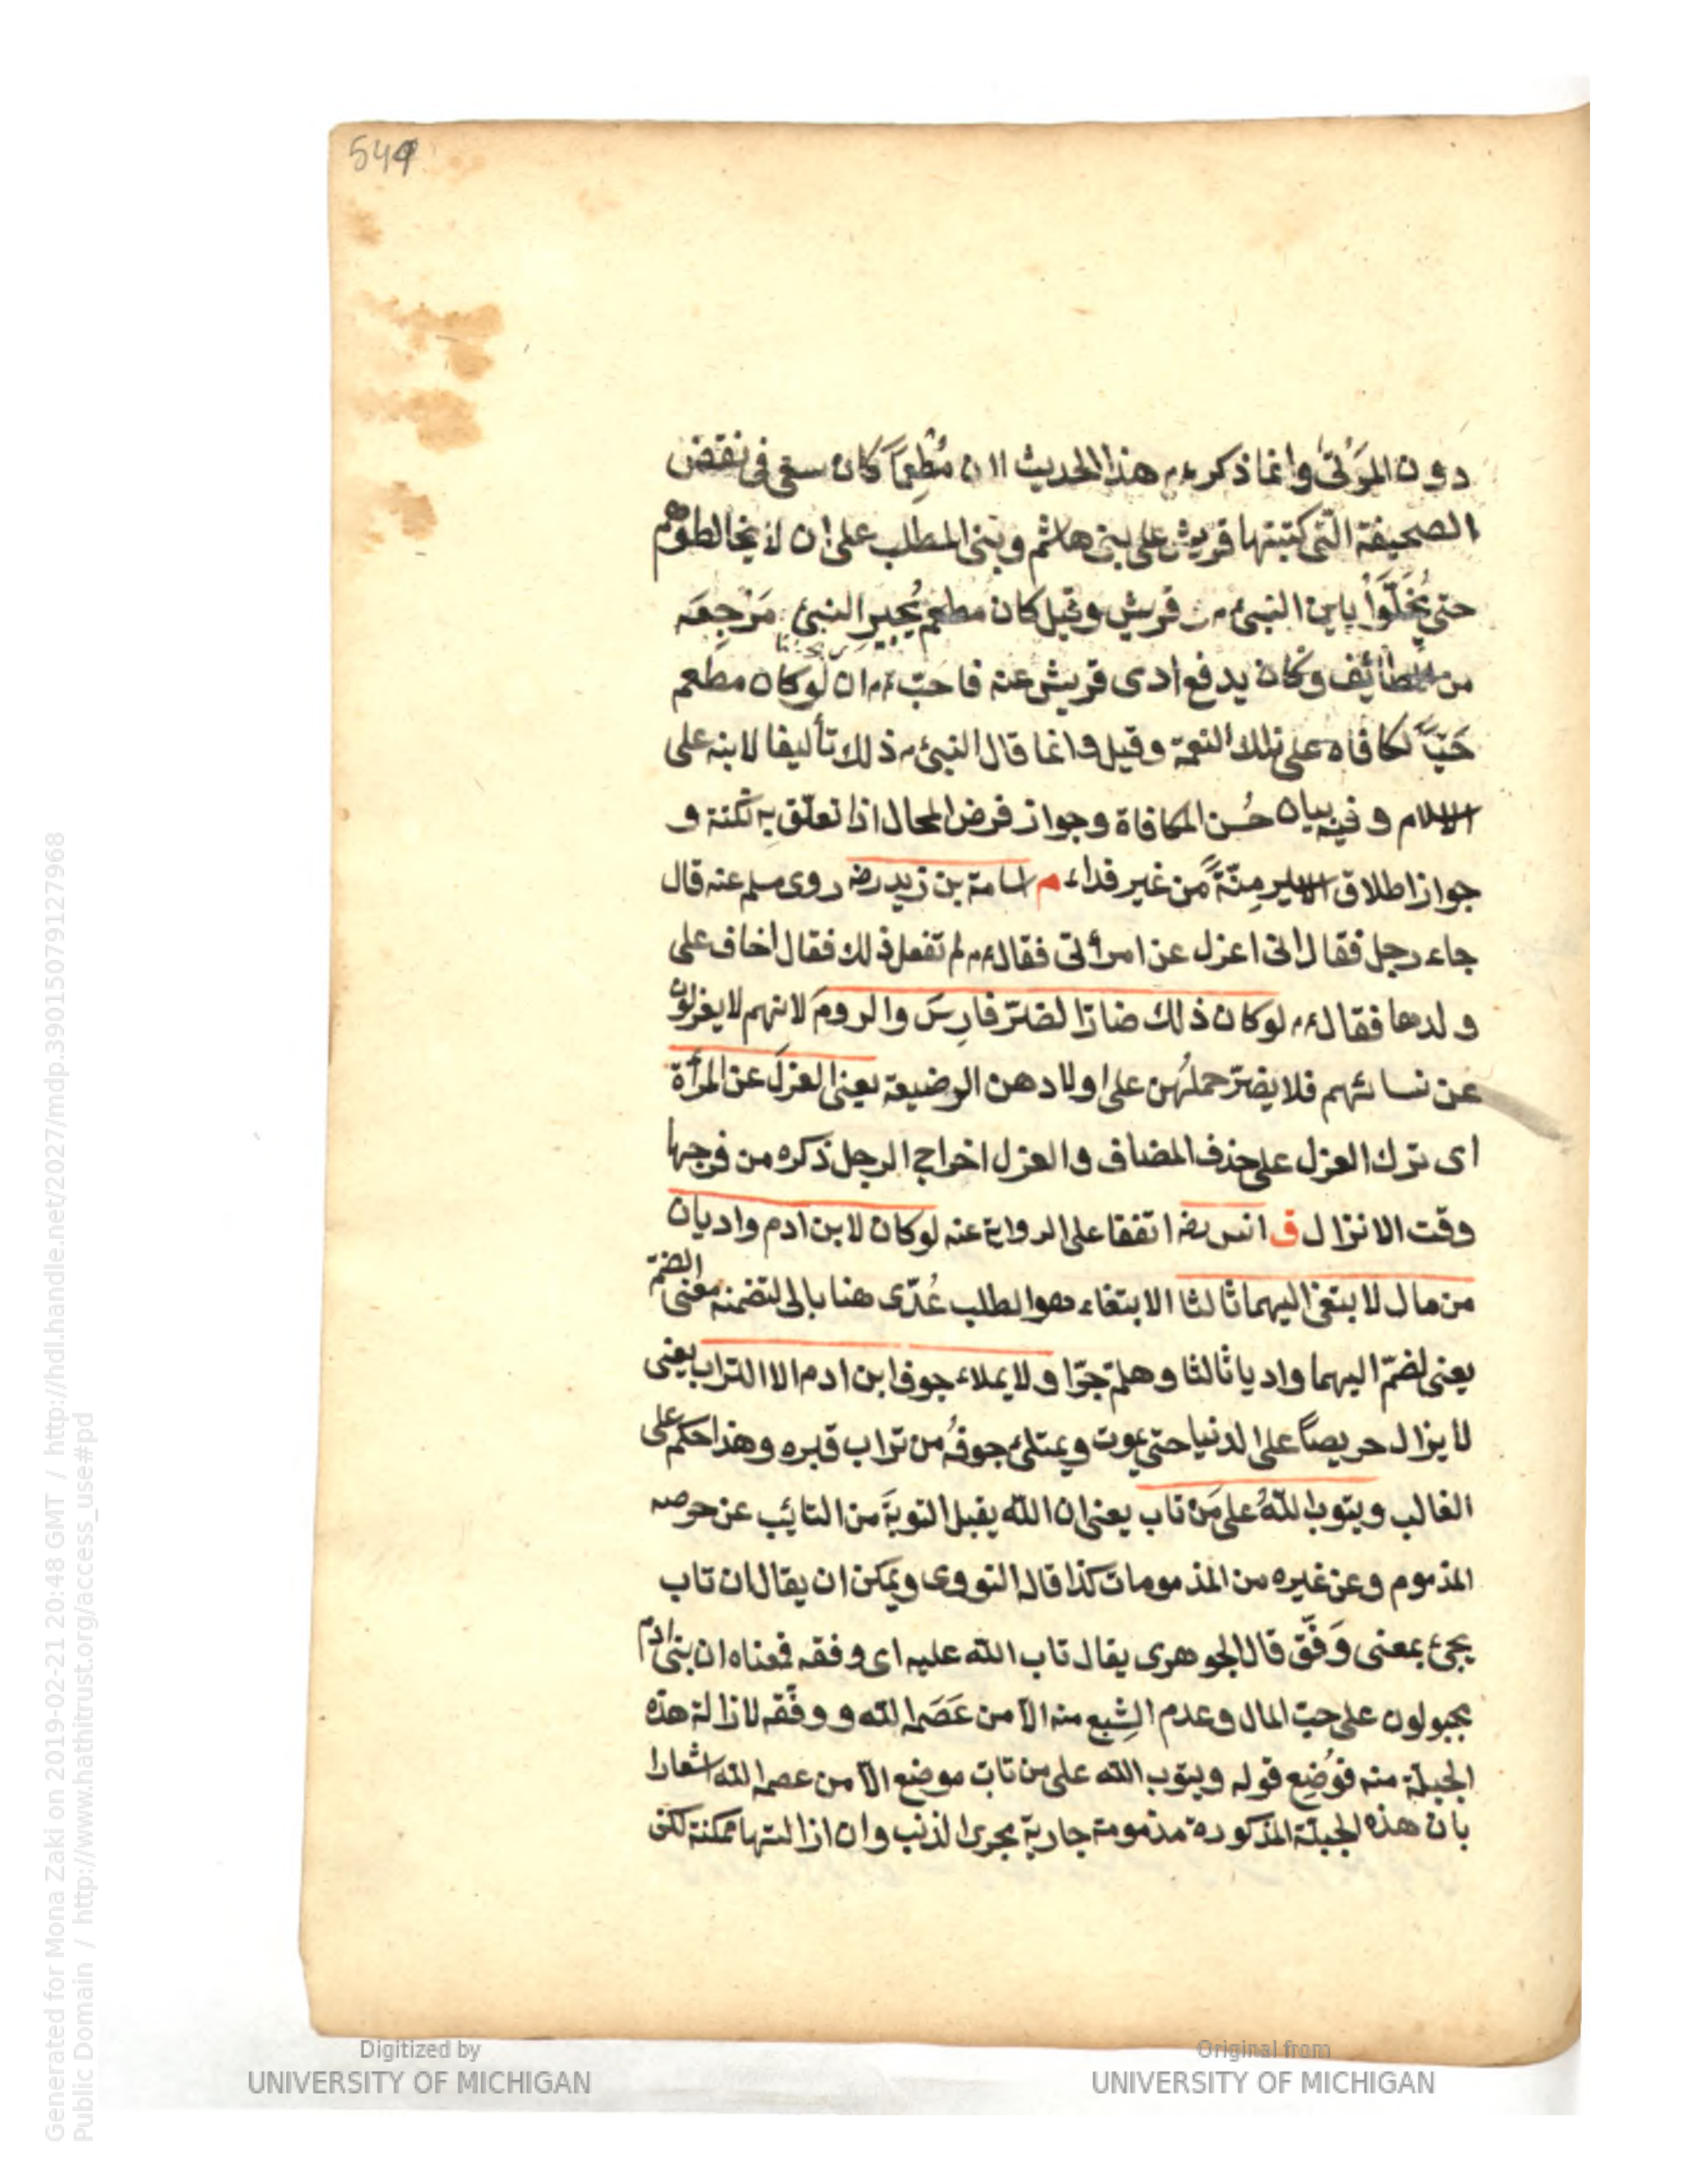 549
دون المَوْتى وانما ذكر ءم هذا الحديث لان مُطعِماً كان سعى فى نقض
الصحيفة التى كتبتها قريش على بنى هاشم وبنى المطلب على ان لا يخالطوهم
حتى يُخَلّوا باين النبى ءم قريش وقيل كان مطعم يُجير النبىّ مَرْجِعَه
من الطائف وكان يدفع اذى قريش عنه فاحبّ ءم ان لو كان مطعم
حَيّاً لكافاه على تلك النعمة وقيل وانما قال النبى م ذلك تأليفا لابنه على
الاسلام وفيه بيان حُسن المكافاة وجواز فرض المحال اذا تعلّق به نكتة و
جواز اطلاق الاسير مِنّةً من غير فداء م اسامة بن زيد رضه روى مسلم عنه قال
جاء رجل فقال انى اعزل عن امرأتى فقال ءم لم تفعل ذلك فقال اخاف على
ولدها فقال ءم لو كان ذلك ضارّا لضرّ فارِسَ والرومَ لانهم لا يعزلون
عن نسائهم فلا يضرّ حملُهن على اولادهن الرضيعة يعنى العزلَ عن المرأة
اى ترك العزل على حذف المضاف والعزل اخراج الرجل ذكره من فرجها
وقت الانزال ق انس رضه اتفقا على الرواية عنه لو كان لابن ادم واديان
من مال لابتغى اليهما ثالثا الابتغاء هو الطلب عُدّى هنا بالى لتضمنه معنى الضمّ
يعنى لضمّ اليهما واديا ثالثا وهلمّ جرّا ولا يملاء جوف ابن ادم الا التراب يعنى
لا يزال حريصاً على الدنيا حتى يموت ويمتلئ جوفُه من تراب قبره وهذا حكم على
الغالب ويتوب اللهُ على مَن تاب يعنى ان الله يقبل التوبةَ من التائب عن حرصه
المذموم وعن غيره من المذمومات كذا قاله النووى ويمكن ان يقال ان تاب
يجئ بمعنى وَفّق قال الجوهرى يقال تاب الله عليه اى وفقه فمعناه ان بنى ادم
مجبولون على حبّ المال وعدم الشِبع منه الّا من عَصَمه الله ووفّقه لازالة هذه
الجبلّة منه فوُضِع قوله ويتوب الله على من تاب موضع الّا من عصمه الله اشعارا
بان هذه الجبلّة المذكورة مذمومة جارية مجرى الذنب وان ازالتها ممكنة لكن
Digitized by
UNIVERSITY OF MICHIGAN
Original from
UNIVERSITY OF MICHIGAN
Generated for Mona Zaki on 2019-02-21 20:48 GMT / http://hdl.handle.net/2027/mdp.39015079127968
Public Domain / http://www.hathitrust.org/access_use#pd